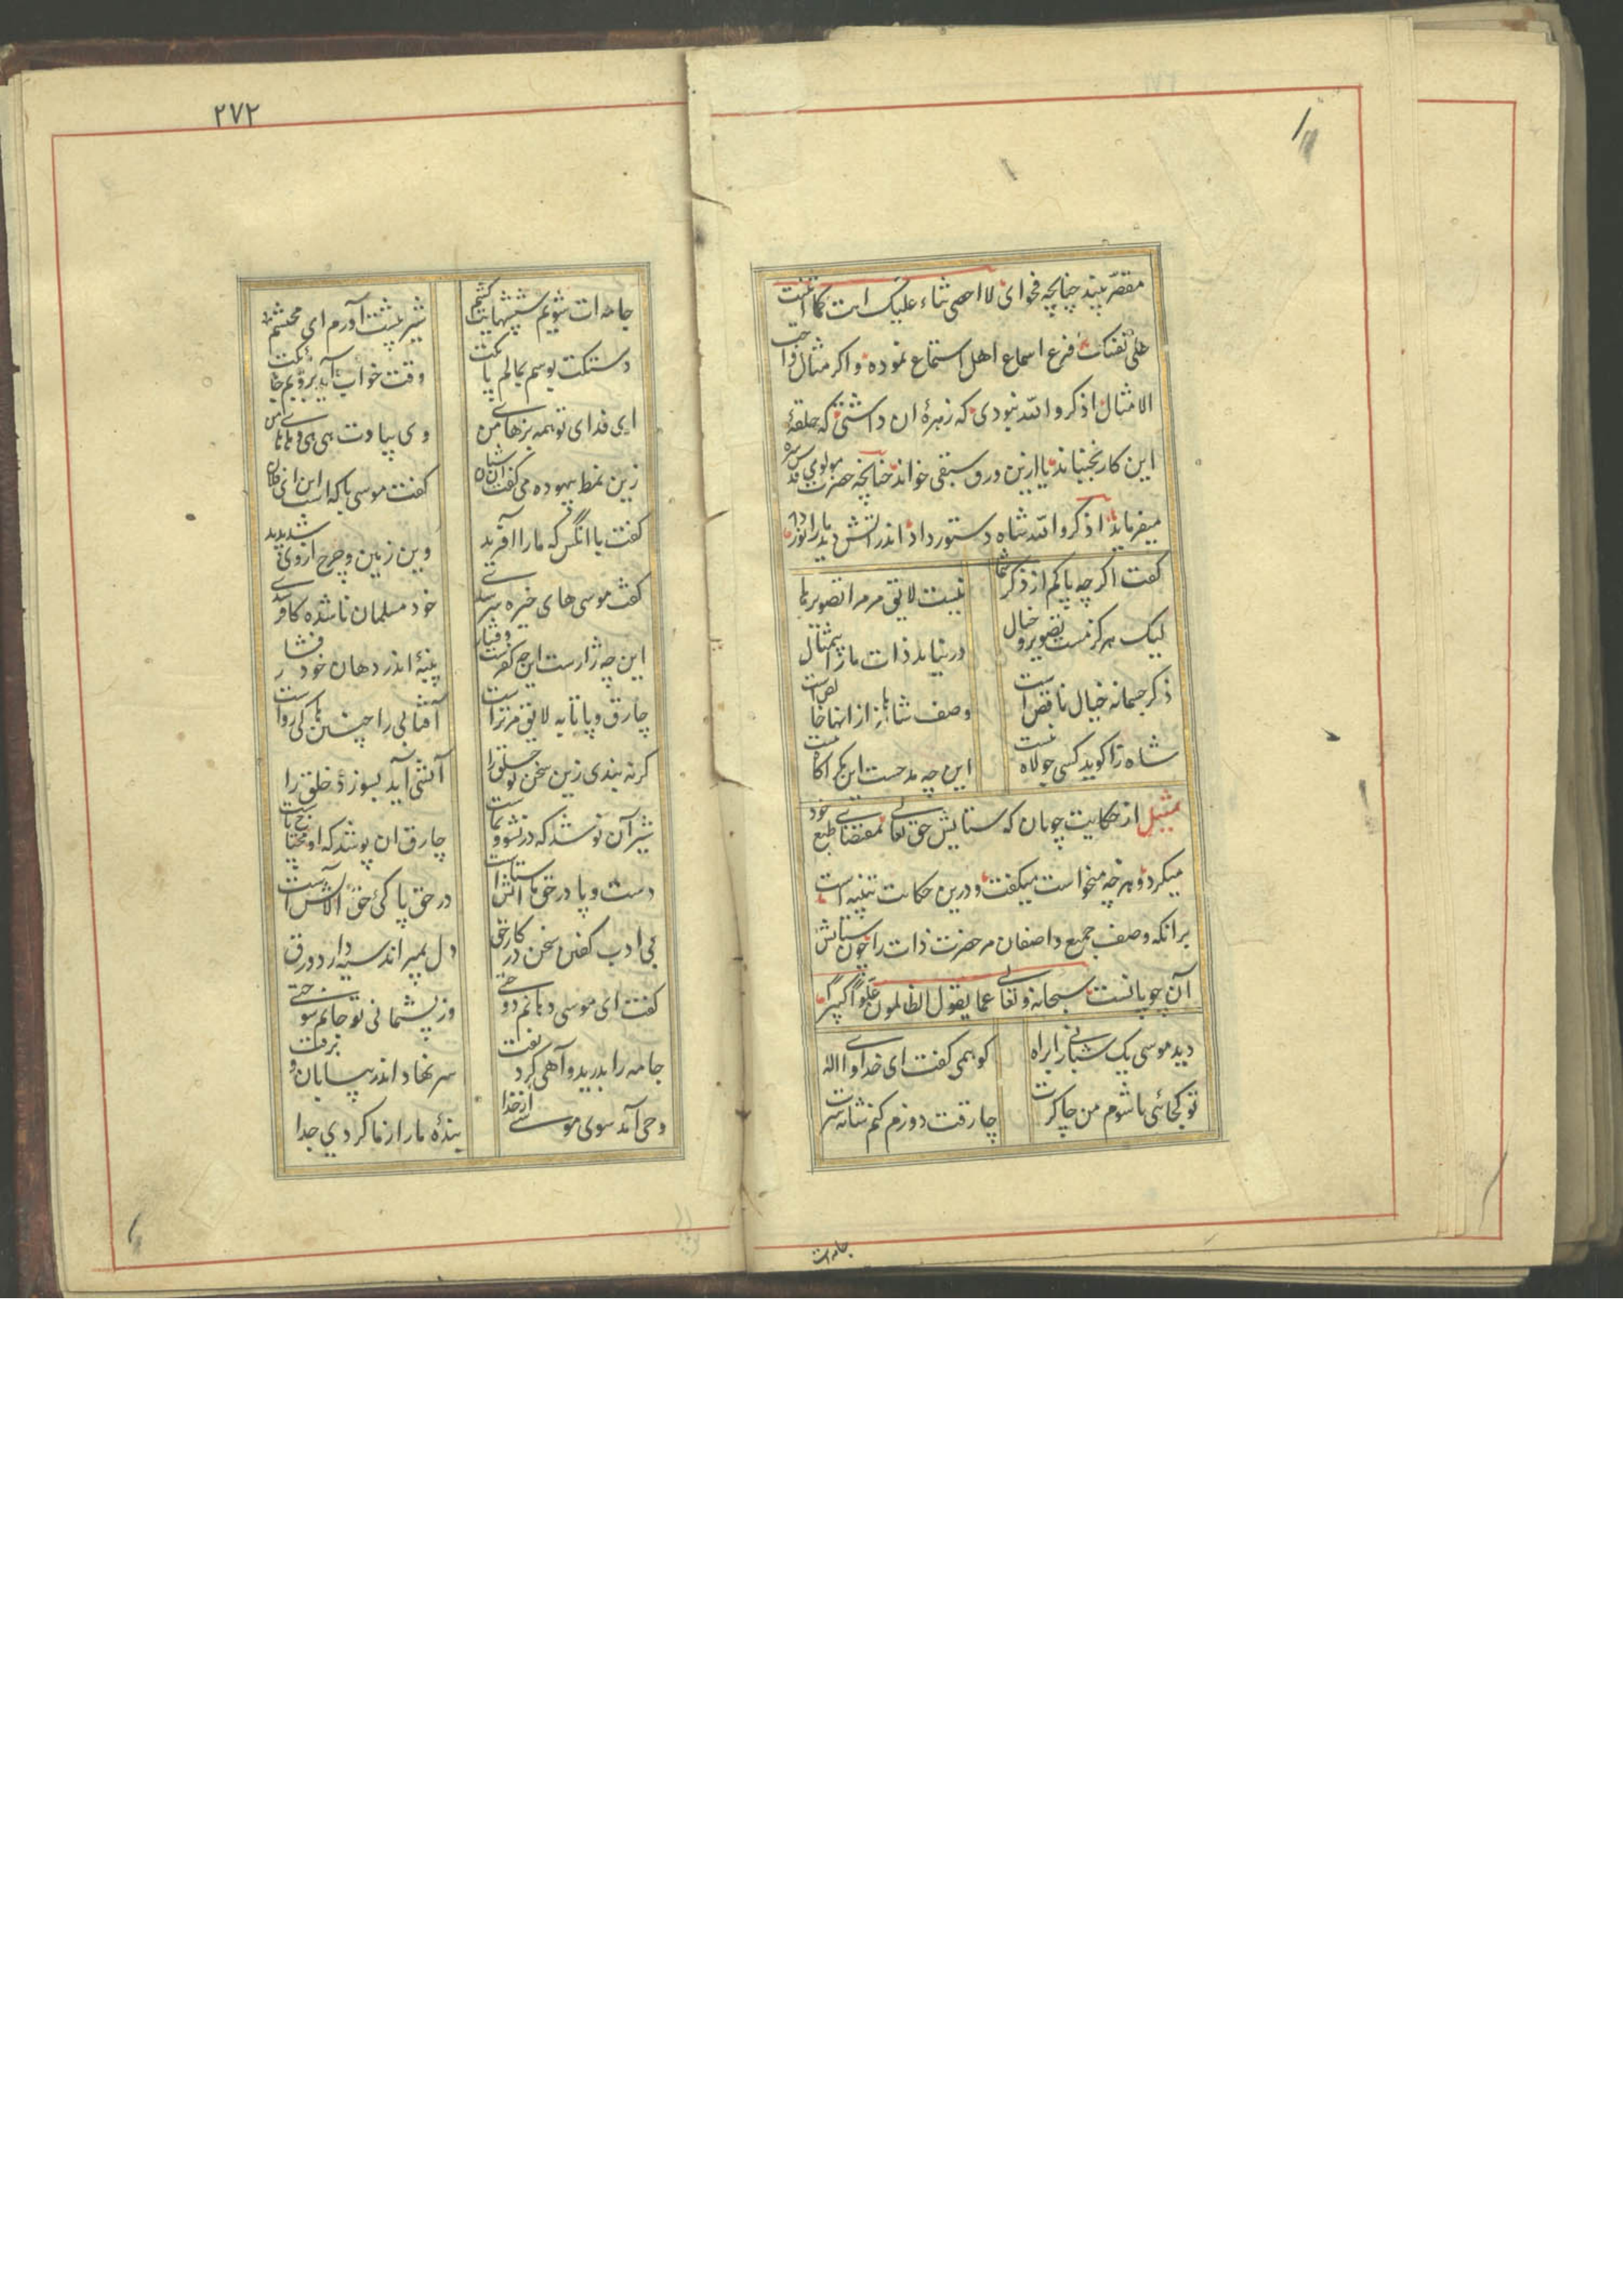 مقصر بیند چنانچه فحوای لا احصی ثناء علیک انت کما اثنیت
علی نفسک قرع اسماع اهل استماع نموده و اکر مثال واجب
الامثال اذکروا الله نبودی که زهرهٔ ان داشتی که حلقهٔ
این کار بجنباند یا ازین ورق سبقی خواند چنانچه حضرت مولوی قدس سره
میفرماید اذکروا الله شاه دستور داد اندر اتش دید ما را نور داد
کفت اکر چه پاکم از ذکر شما نیست لایق مر مرا تصویرها
لیک هرکز مست تصویر و خیال در نیابد ذات ما را بیمثال
ذکر جسمانه خیال ناقص است وصف شاهانه از انها خالص است
شاه را کوید کسی جولاه نیست این چه مدحست این مکر اکاه نیست
تمثیل از حکایت چوبان که ستایش حق تعالی بمقتضای طبع خود
میکرد و هر چه میخواست میکفت و درین حکایت تنبیه است
برانکه وصف جمیع واصفان مر حضرت ذات را چون ستایش
آن چوپانست سبحانه و تعالی عما یقول الظالمون علوا کبیرا
دید موسی یک شبانی را براه کو همی کفت ای خدا و ای اله
تو کجائی تا شوم من چاکرت چارقت دوزم کنم شانه سرت
جامه ات
۲۷۲
جامه ات شویم سپشهایت کشم شیر پیشت آورم ای محتشم
دستکت بوسم بمالم پایکت وقت خواب آید بروبم جایکت
ای فدای تو همه بزهای من وی بیادت هی هی و هیهای من
زین نمط بیهوده می کفت ان شبان کفت موسی با که است این ای فلان
کفت با انکس که ما را آفرید وین زمین و چرخ ازوی شد پدید
کفت موسی های خیره سر شدی خود مسلمان ناشده کافر شدی
این چه ژاژست این چه کفرست و فشار پنبهٔ اندر دهان خود فشار
چارق و پاتابه لایق مر تراست آفتابی را چنینها کی رواست
کر نه بندی زین سخن تو حلق را آتشی آید بسوزد خلق را
شیر آن نوشد که در نشو و نماست چارق ان پوشد که او محتاج پاست
دست و پا در حق ما استایش است در حق پاکی حق آلایش است
بی ادب کفتن سخن در کار حق دل بمیراند سیه دارد ورق
کفت ای موسی دهانم دوختی وز پشیمانی تو جانم سوختی
جامه را بدرید و آهی کرد تفت سر نهاد اندر بیابان و برفت
وحی آمد سوی موسی از خدا بندهٔ ما را ز ما کردی جدا